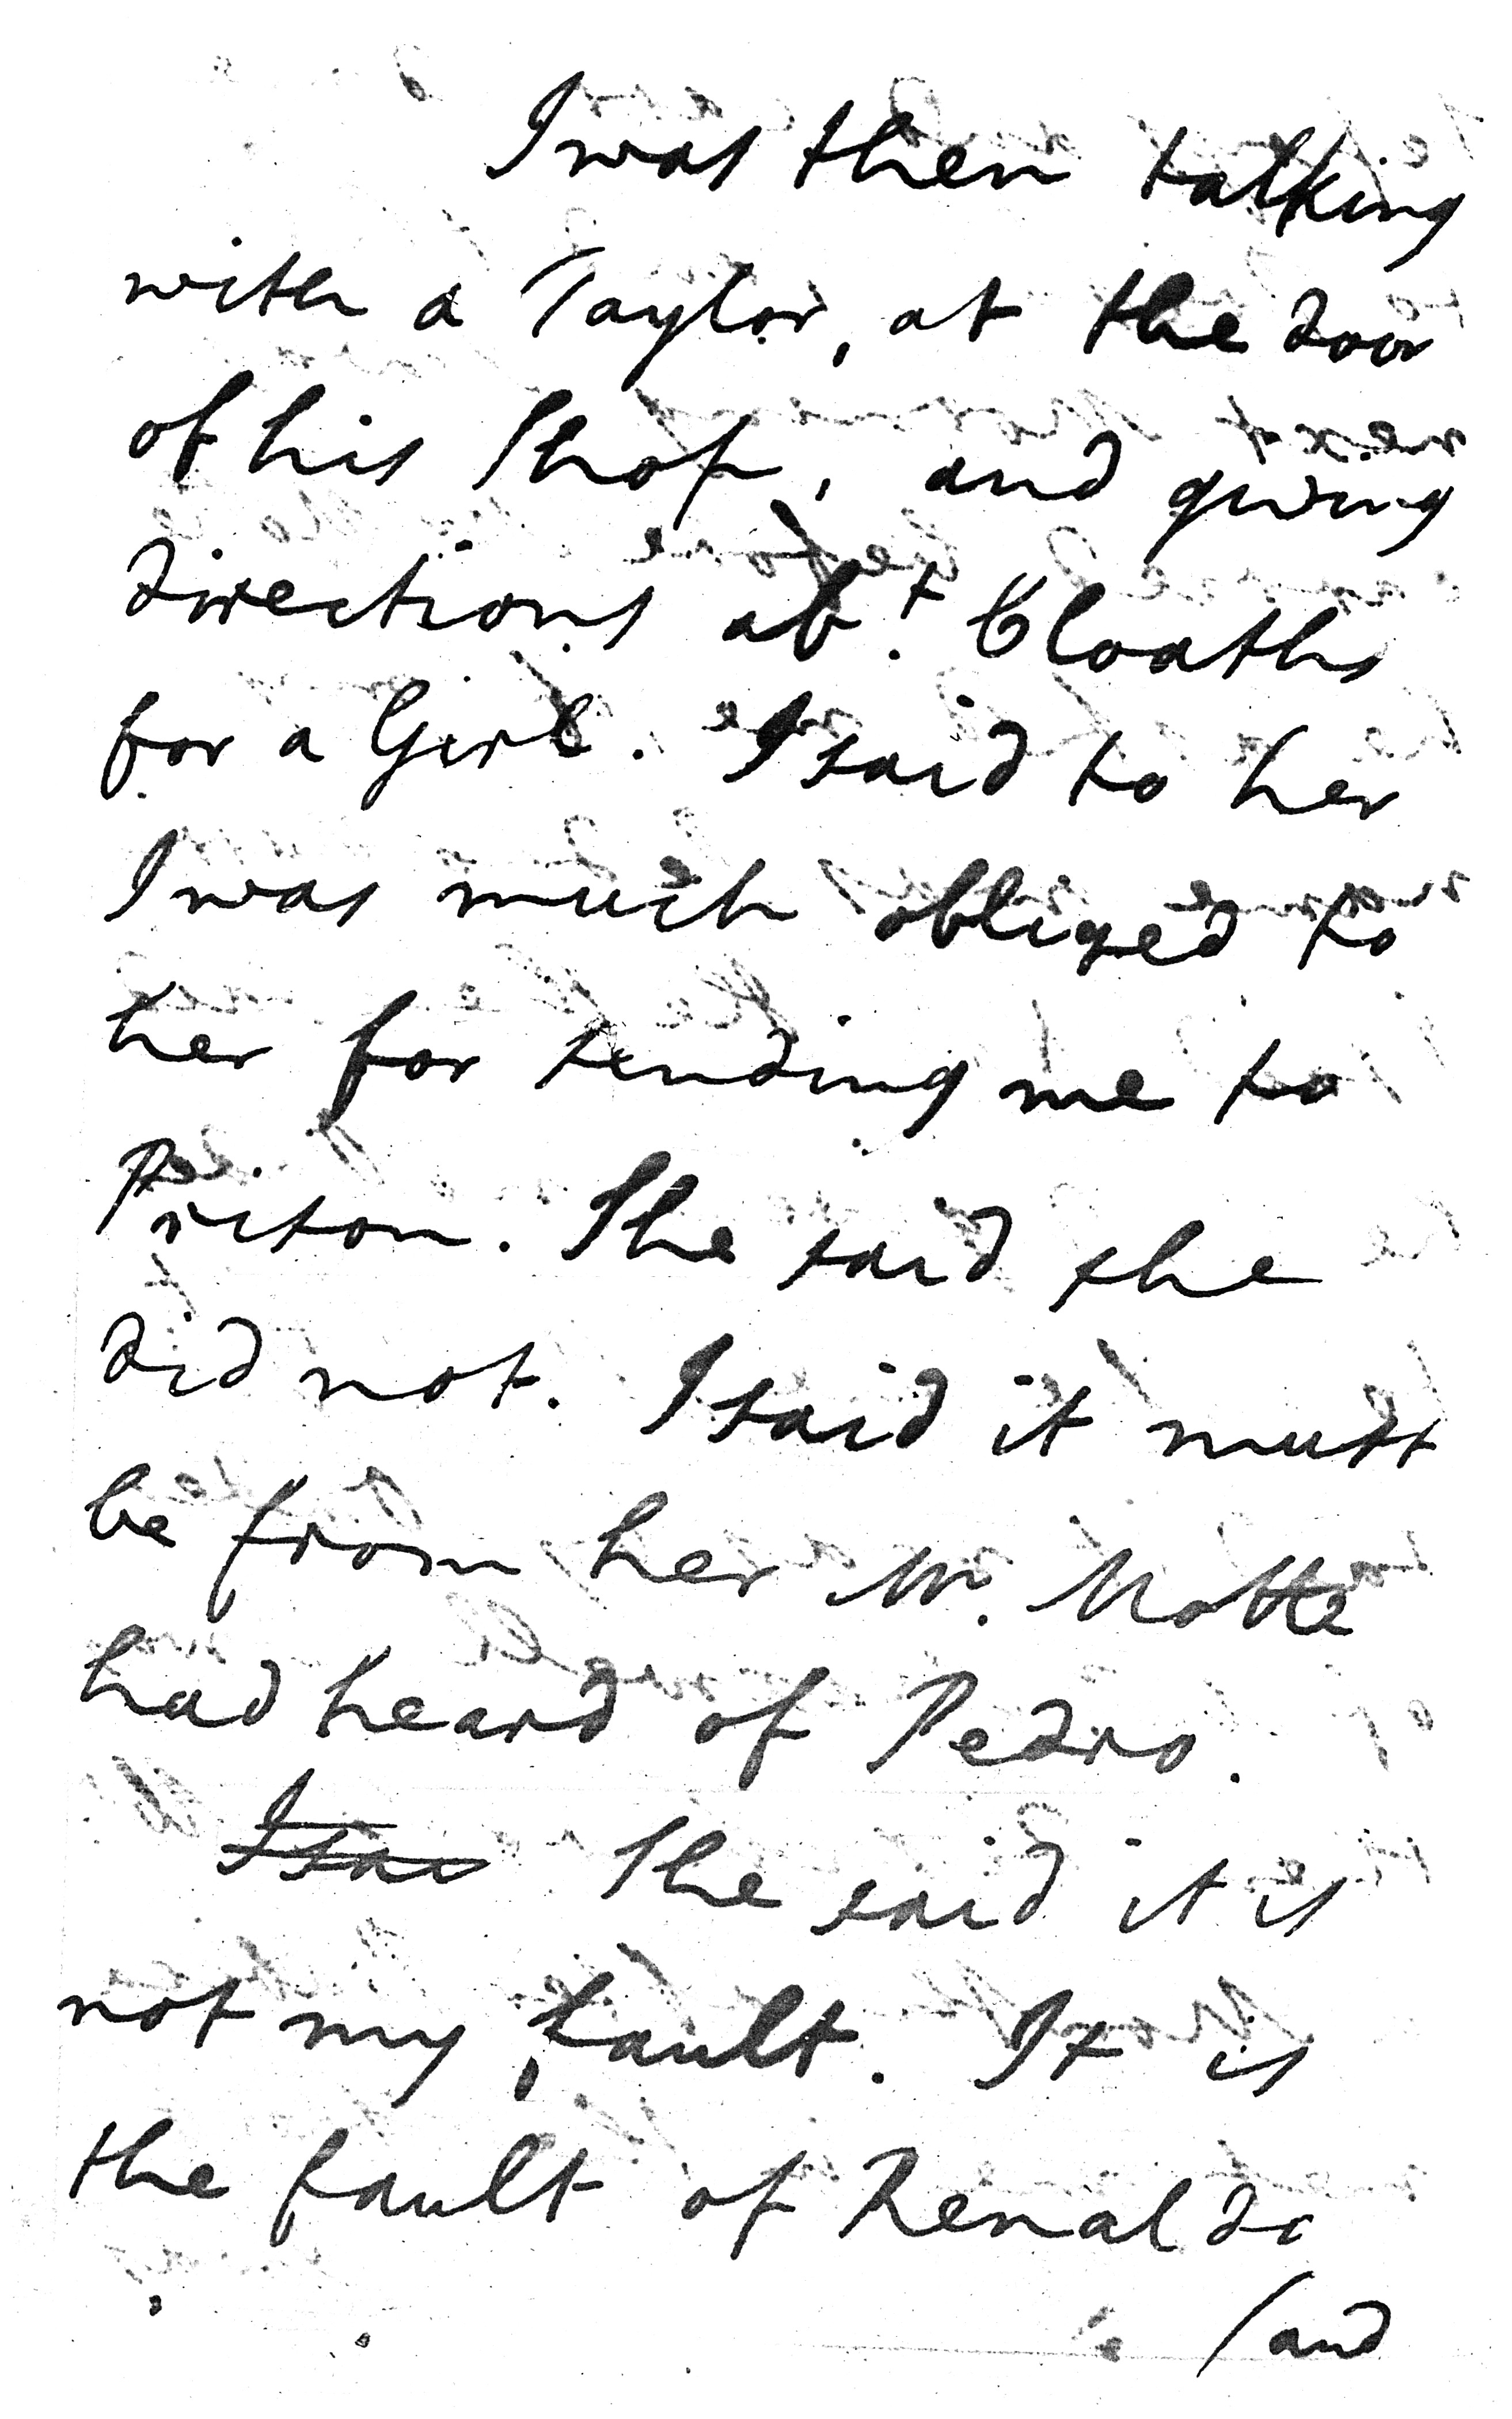 I was then talking
with a Taylor, at the door
of his Shop, and giving
directions abt. Cloaths
for a Girl. I said to her
I was much obliged to
her for sending me to
Prison. She said she
did not. I said it must
be from her Mr. Motte
had heard of Pedro.
I sai She said it is
not my fault. It is
the fault of Renaldo
(and